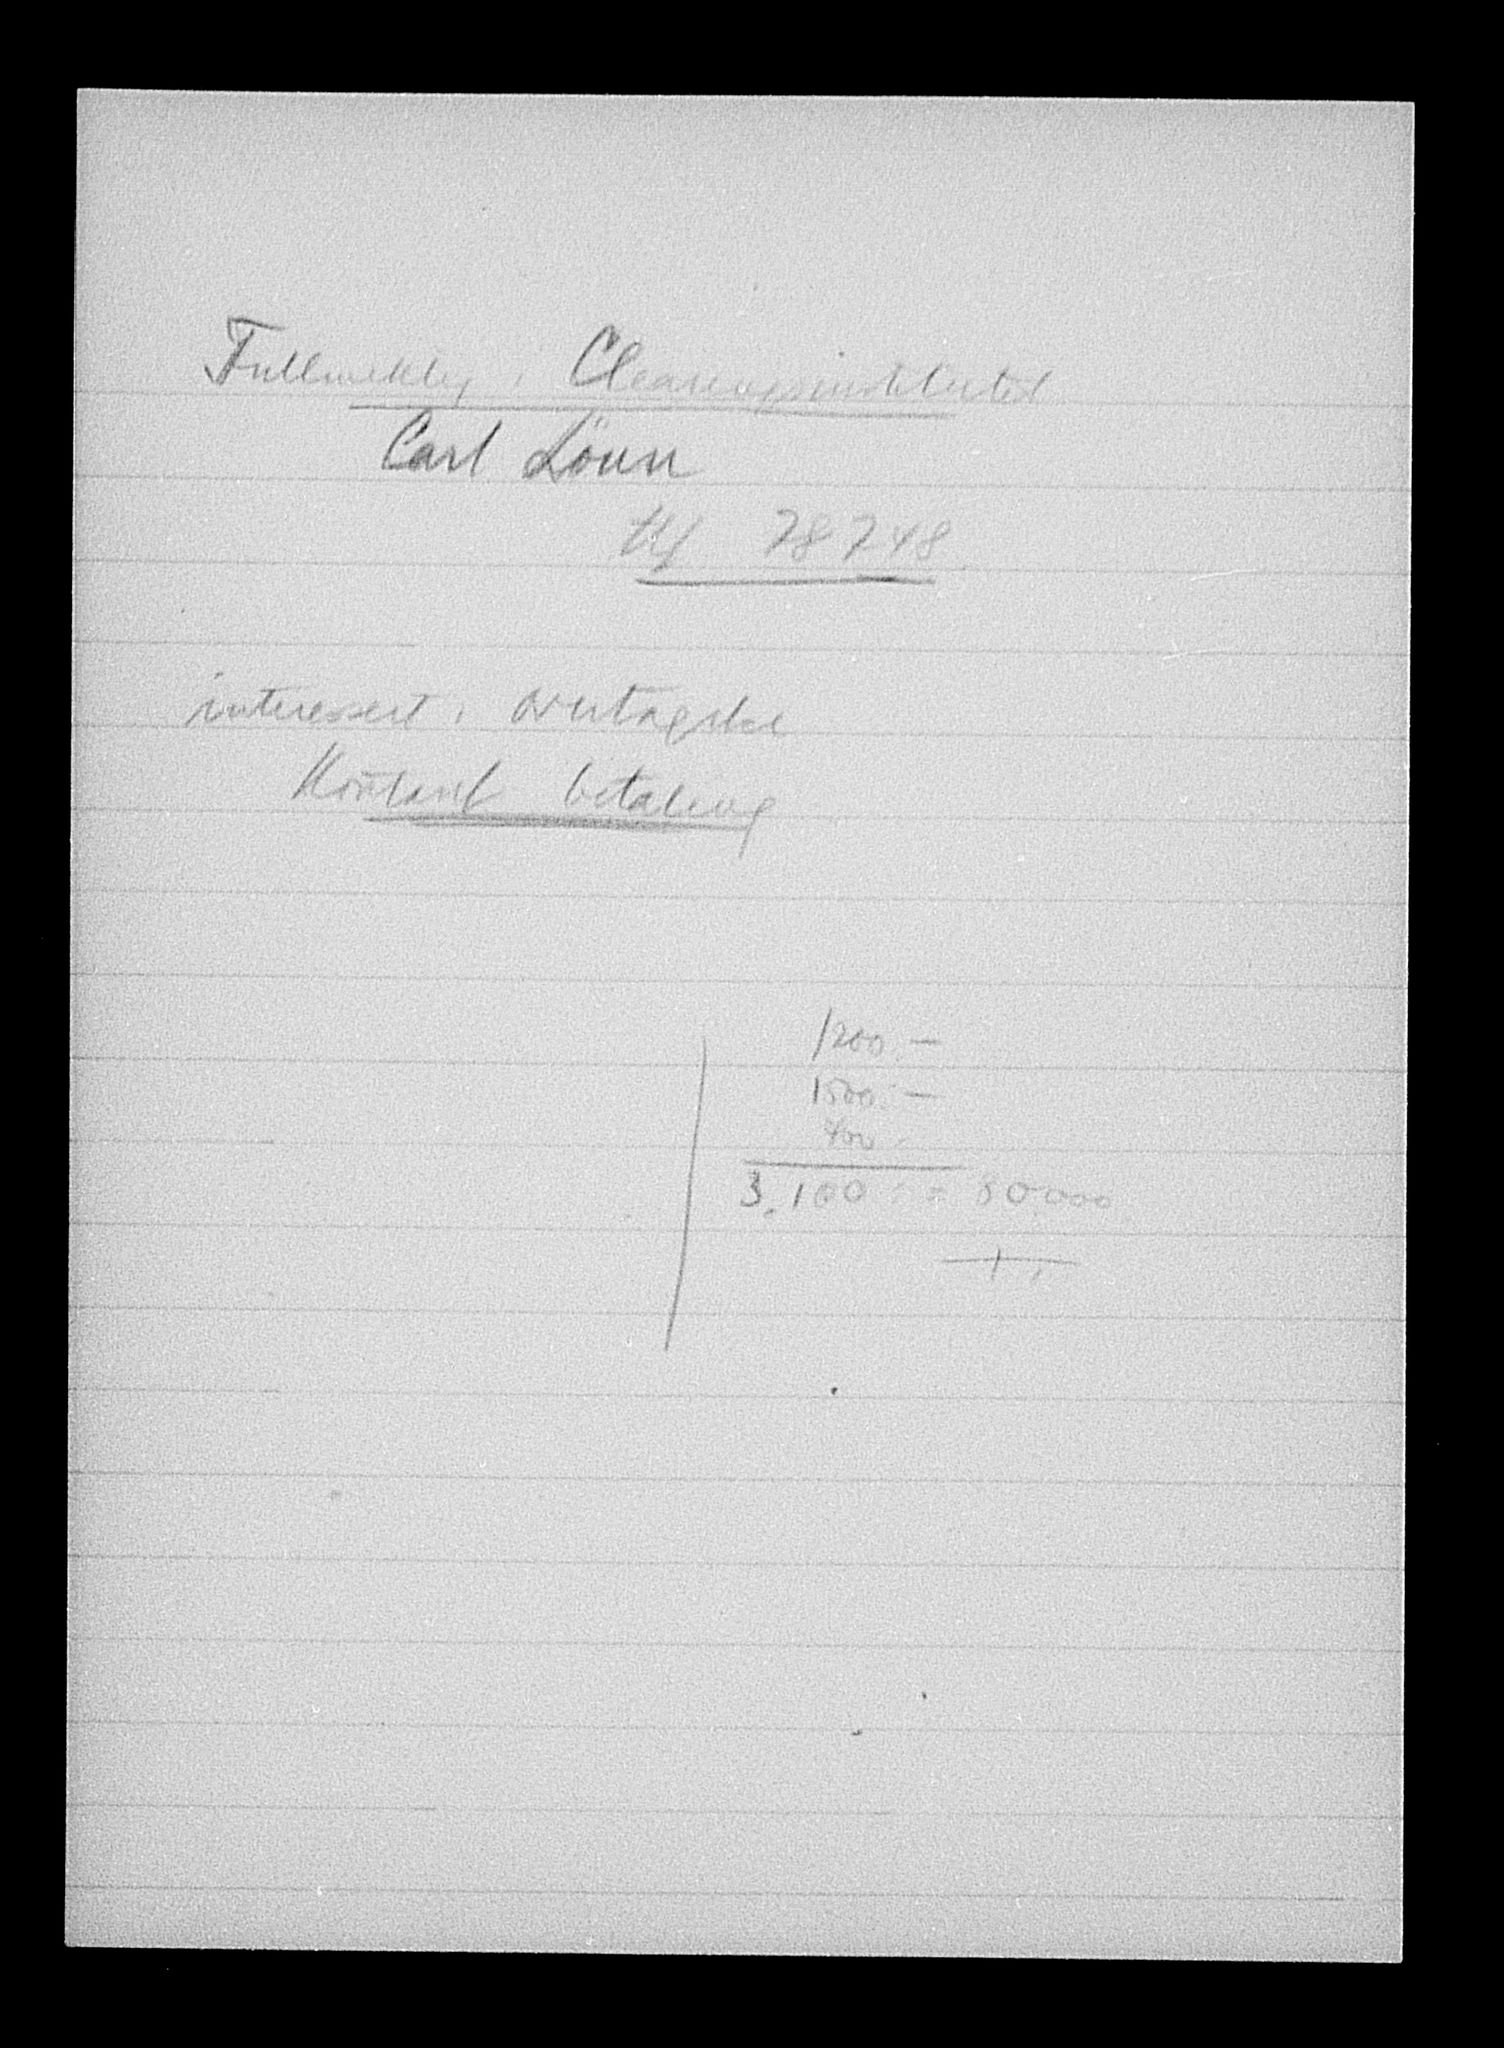 Fullmektig i Clearinginstituttet
Carl Lönn
tlf 78748
interessert i overtagelse
Kontant betaling
1200.—
1500.—
400.-
3.100 = 80.000